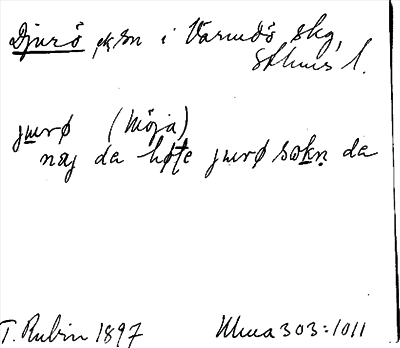 Djurö, sksn i Värmdö skg,
Sthlms l.
jurø (Möja)
näj da høte jurø sokn da
T. Rubin 1897 Ulma 303:1011